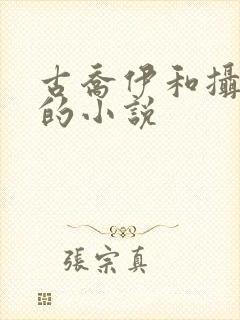 古喬伊和攝
的小說
張宗真